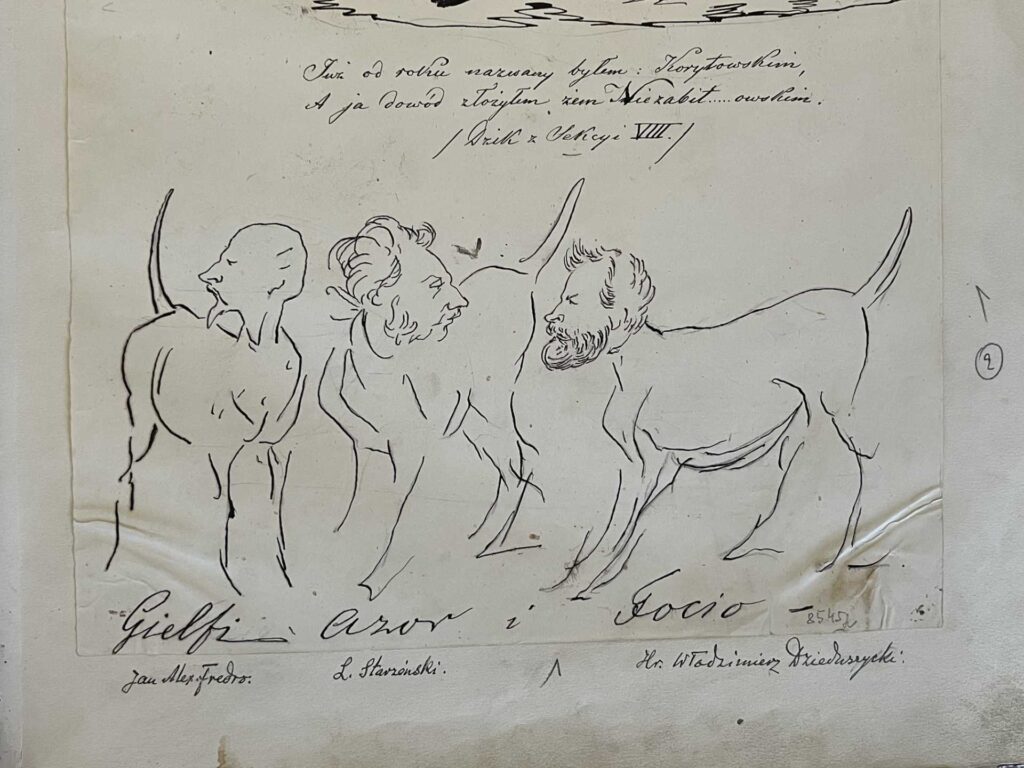 Już od roku nazwany byłem: Korytowskim,
A ja dowód złożyłem żem Niezabit.....owskim.
/Dzik z Sekcyi VIIII./
Gielfi. Azor i Focio –
8545
Jan Alex. Fredro. L. Starzeński. Hr. Włodzimierz Dzieduszycki.
2